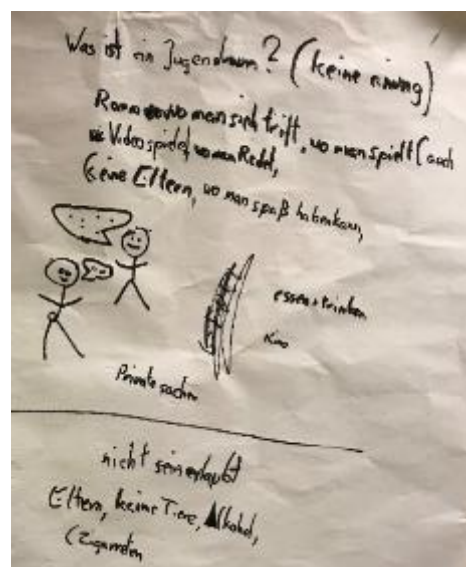 Was ist ein Jugendraum? (keine einung)
Raum wo man sich trift, wo man spielt (auch
Videospiele, wo man Redet,
keine Eltern, wo man spaß haben kann,
essen + trinken
Kino
Private sachen
nicht sein erlaubt
Eltern, keine Tiere, Alkohol,
(Zigaretten